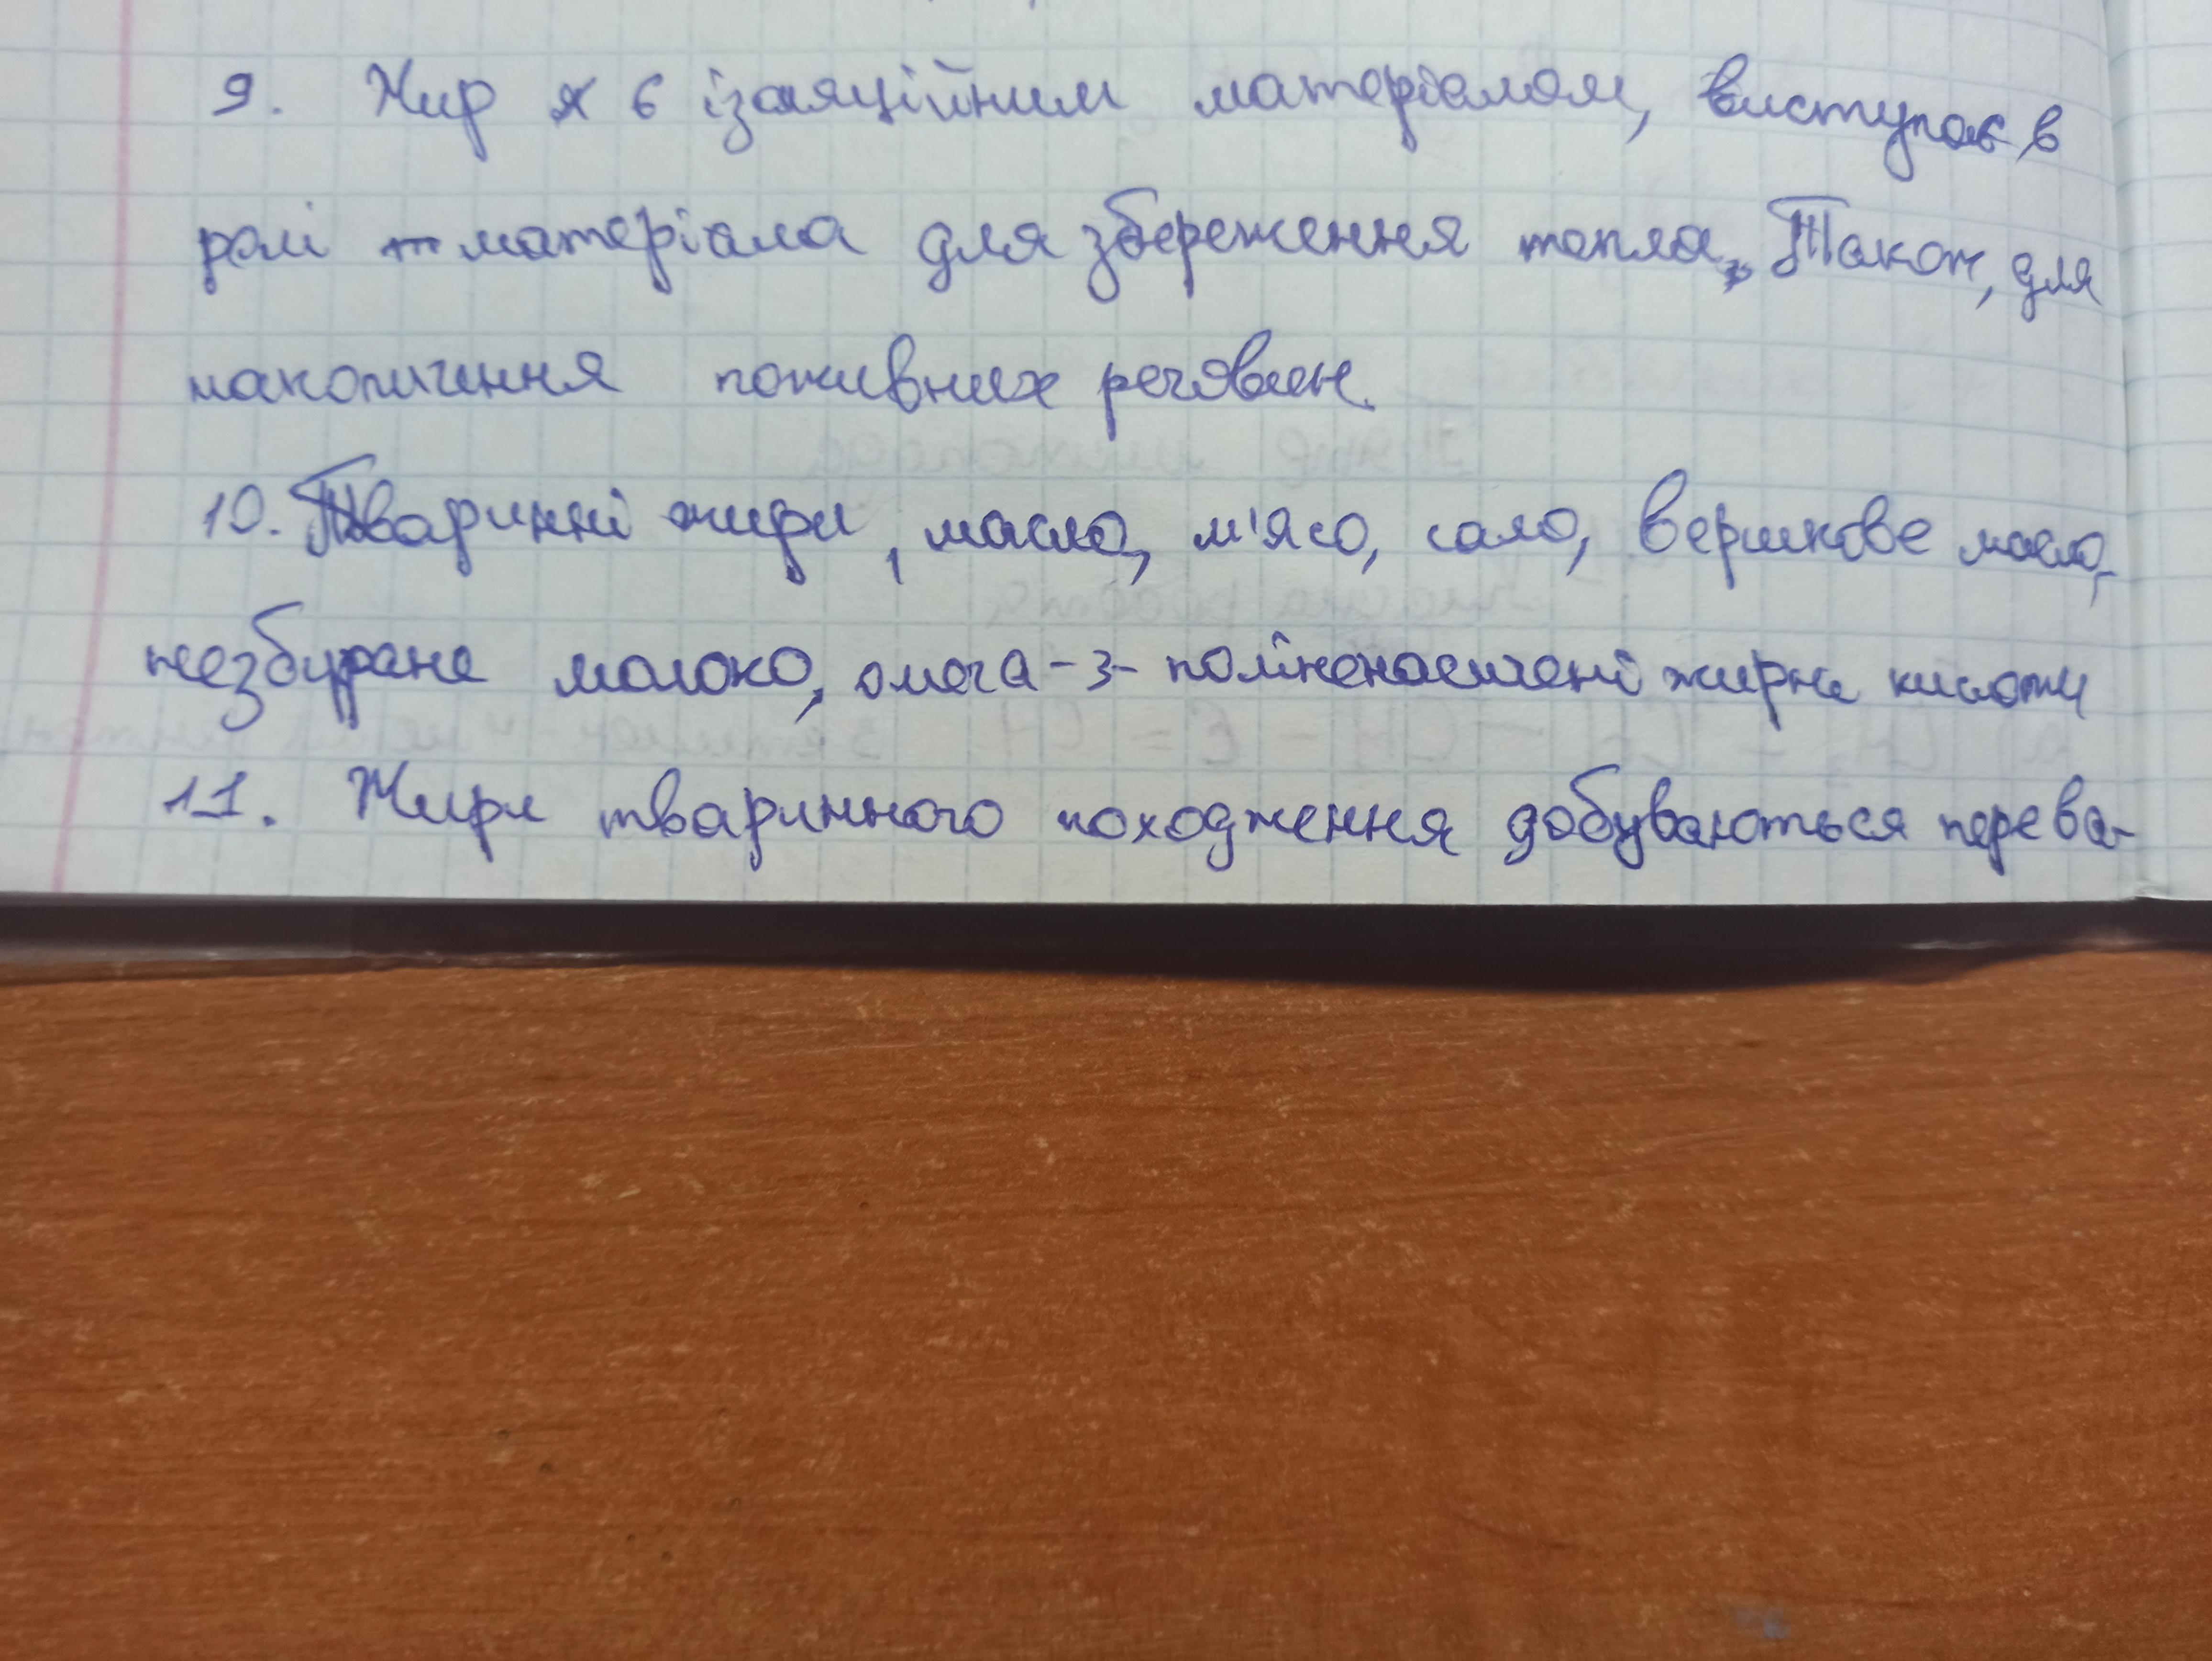 9. Жир є ізоляційним матеріалом, виступає в
ролі матеріала для збереження тепла. Також, для
накопичення поживних речовин.
10. Тваринні жири, масло, м'ясо, сало, вершкове масло,
незбиране молоко, омега-3-поліненасичені жирні кислоти
11. Жири тваринного походження добуваються перева-